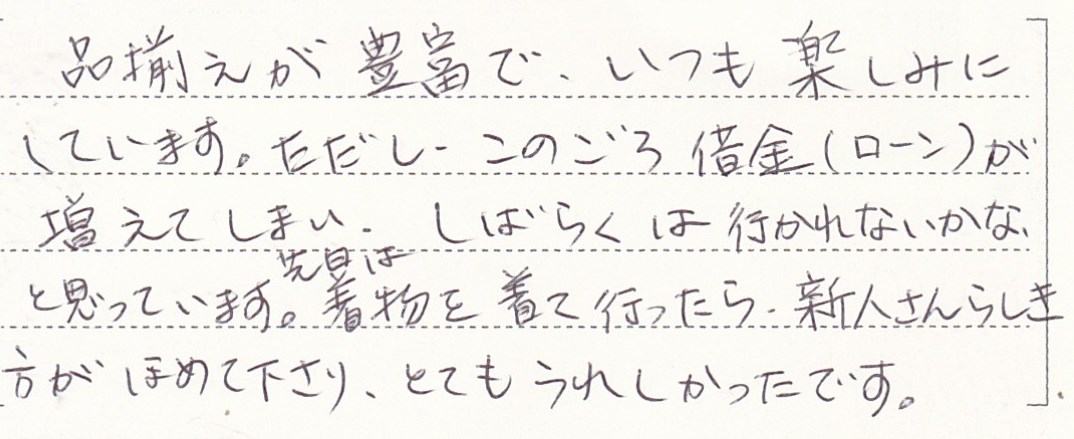 品揃えが豊富で、いつも楽しみに
しています。ただし、このごろ借金(ローン)が
増えてしまい、しばらくは行かれないかな、
先日は
と思っています。着物を着て行ったら、新人さんらしき
方がほめて下さり、とてもうれしかったです。